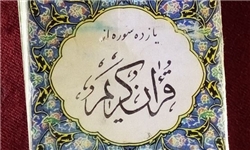 یازده سوره از
قرآن کریم